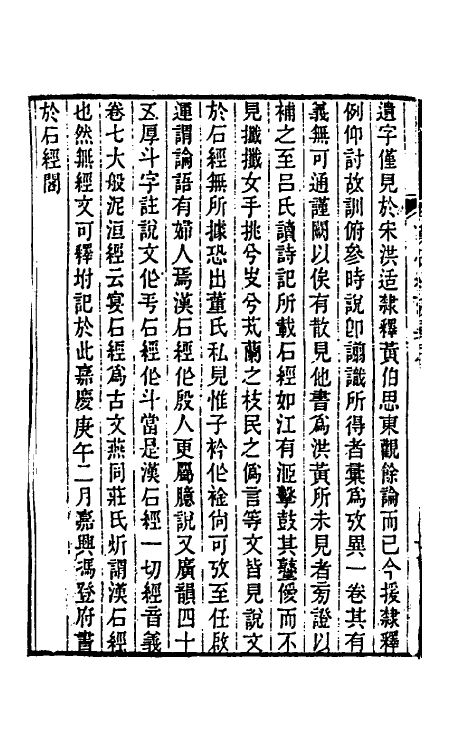 遺字僅見於宋洪适隸釋黃伯思東觀餘論而已今援隸釋
例仰討故訓俯參時說卽謭識所得者彙爲攷異一卷其有
義無可通謹闕以俟有散見他書爲洪黃所未見者旁證以
補之至呂氏讀詩記所載石經如江有洍擊鼓其鼞僾而不
見攕攕女手挑兮㕞兮芄蘭之枝民之僞言等文皆見說文
於石經無所據恐出董氏私見惟子衿作裣尙可攷至任啟
運謂論語有婦人焉漢石經作殷人更屬臆說又廣韻四十
五厚斗字註說文作㪷石經作斗當是漢石經一切經音義
卷七大般泥洹經云宴石經爲古文燕同莊氏炘謂漢石經
也然無經文可釋坿記於此嘉慶庚午二月嘉興馮登府書
於石經閣